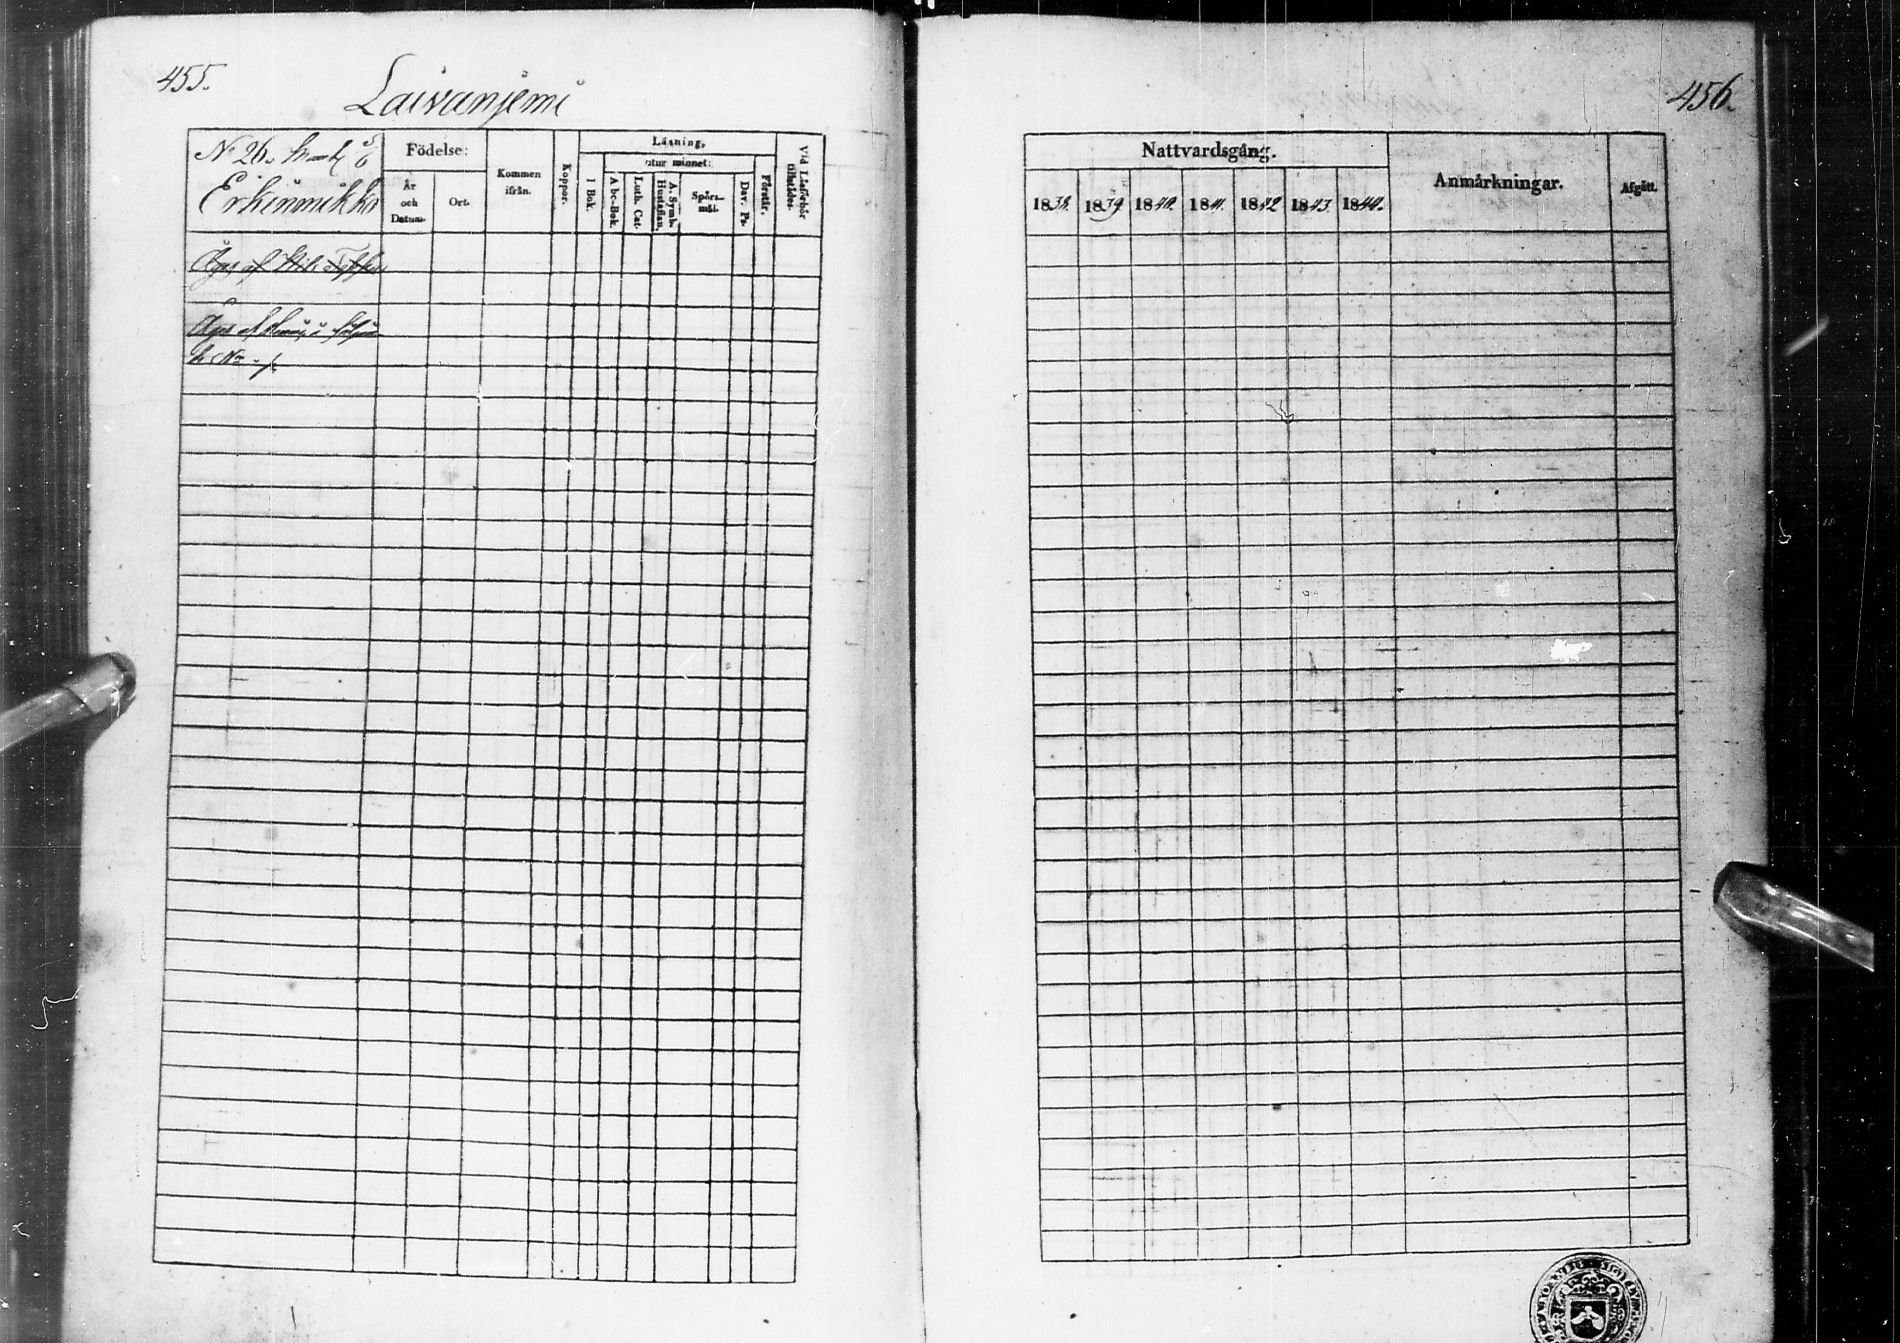 455.
Laivanjemi
No 26.
Erkinmikko
Födelse:
År
och
Datum.
Ort.
Kommen
ifrån.
Koppor.
Läsning,
utur minnet:
I Bok.
Abc-Bok.
Luth. Cat.
A. Symb.
Hustaflan.
Spörs-
mål.
Dav. Ps.
Förstår.
Vid Läsförhör
tillstädes.
Äges af
Äges af
456.
Nattvardsgång.
1838. 1839. 1840. 1841. 1842. 1843. 1844.
Anmärkningar.
Afgått.